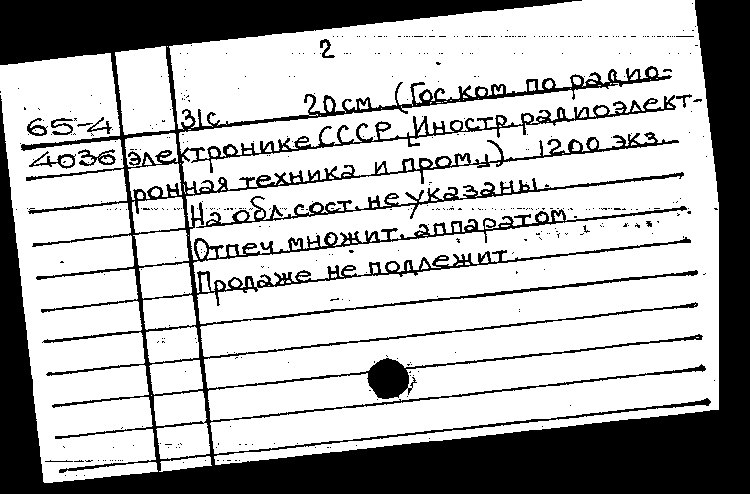 2
65-4 31с. 20см. (Гос.ком. по радио-
4036 электронике СССР. [Иностр. радиоэлект-
ронная техника и пром.]). 1200 экз.
На обл. сост. не указаны.
Отпеч. множит. аппаратом.
Продаже не подлежит